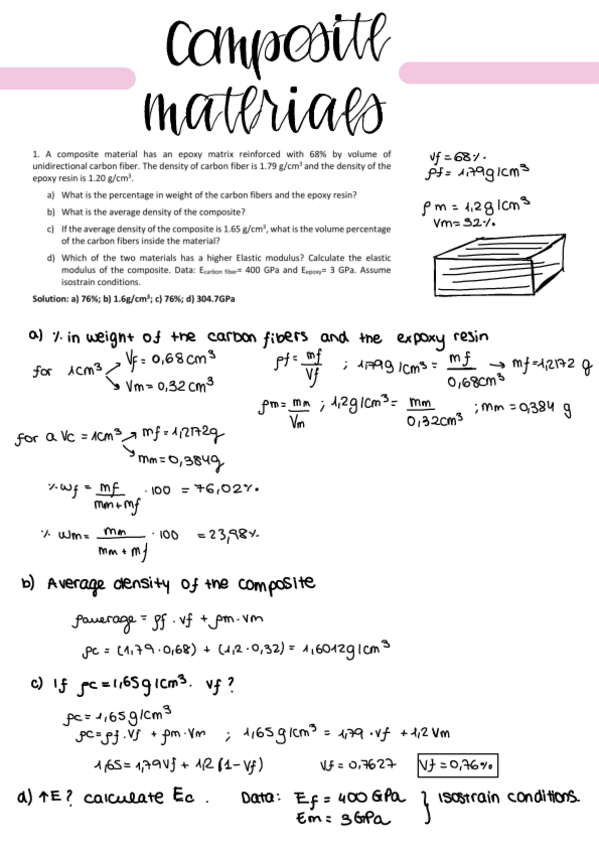 Composite
materials
1. A composite material has an epoxy matrix reinforced with 68% by volume of
unidirectional carbon fiber. The density of carbon fiber is 1.79 g/cm³ and the density of the
epoxy resin is 1.20 g/cm³.
a) What is the percentage in weight of the carbon fibers and the epoxy resin?
b) What is the average density of the composite?
c) If the average density of the composite is 1.65 g/cm³, what is the volume percentage
of the carbon fibers inside the material?
d) Which of the two materials has a higher Elastic modulus? Calculate the elastic
modulus of the composite. Data: Ecarbon fiber= 400 GPa and Eepoxy= 3 GPa. Assume
isostrain conditions.
Solution: a) 76%; b) 1.6g/cm³; c) 76%; d) 304.7GPa
Vf = 68%.
ρf = 1,79g/cm³
ρm = 1,2g/cm³
Vm = 32%.
a) % in weight of the carbon fibers and the expoxy resin
for 1cm³ → Vf = 0,68cm³
→ Vm = 0,32 cm³
ρf = mf/Vf ; 1,79g/cm³ = mf/0,68cm³ → mf = 1,2172 g
ρm = mm/Vm ; 1,2g/cm³ = mm/0,32cm³ ; mm = 0,384 g
for a Vc = 1cm³ → mf = 1,2172g
→ mm = 0,384g
% wf = mf/mm+mf · 100 = 76,02%.
% wm = mm/mm+mf · 100 = 23,98%
b) Average density of the composite
ρaverage = ρf · vf + ρm · vm
ρc = (1,79 · 0,68) + (1,2 · 0,32) = 1,6012g/cm³
c) If ρc = 1,65g/cm³. Vf?
ρc = 1,65g/cm³
ρc = ρf · Vf + ρm · Vm ; 1,65g/cm³ = 1,79 · Vf + 1,2 Vm
1,65 = 1,79Vf + 1,2(1-Vf) Vf = 0,7627 Vf = 0,76%
d) ↑E? calculate Ec. Data: Ef = 400 GPa } Isostrain conditions.
Em = 3GPa